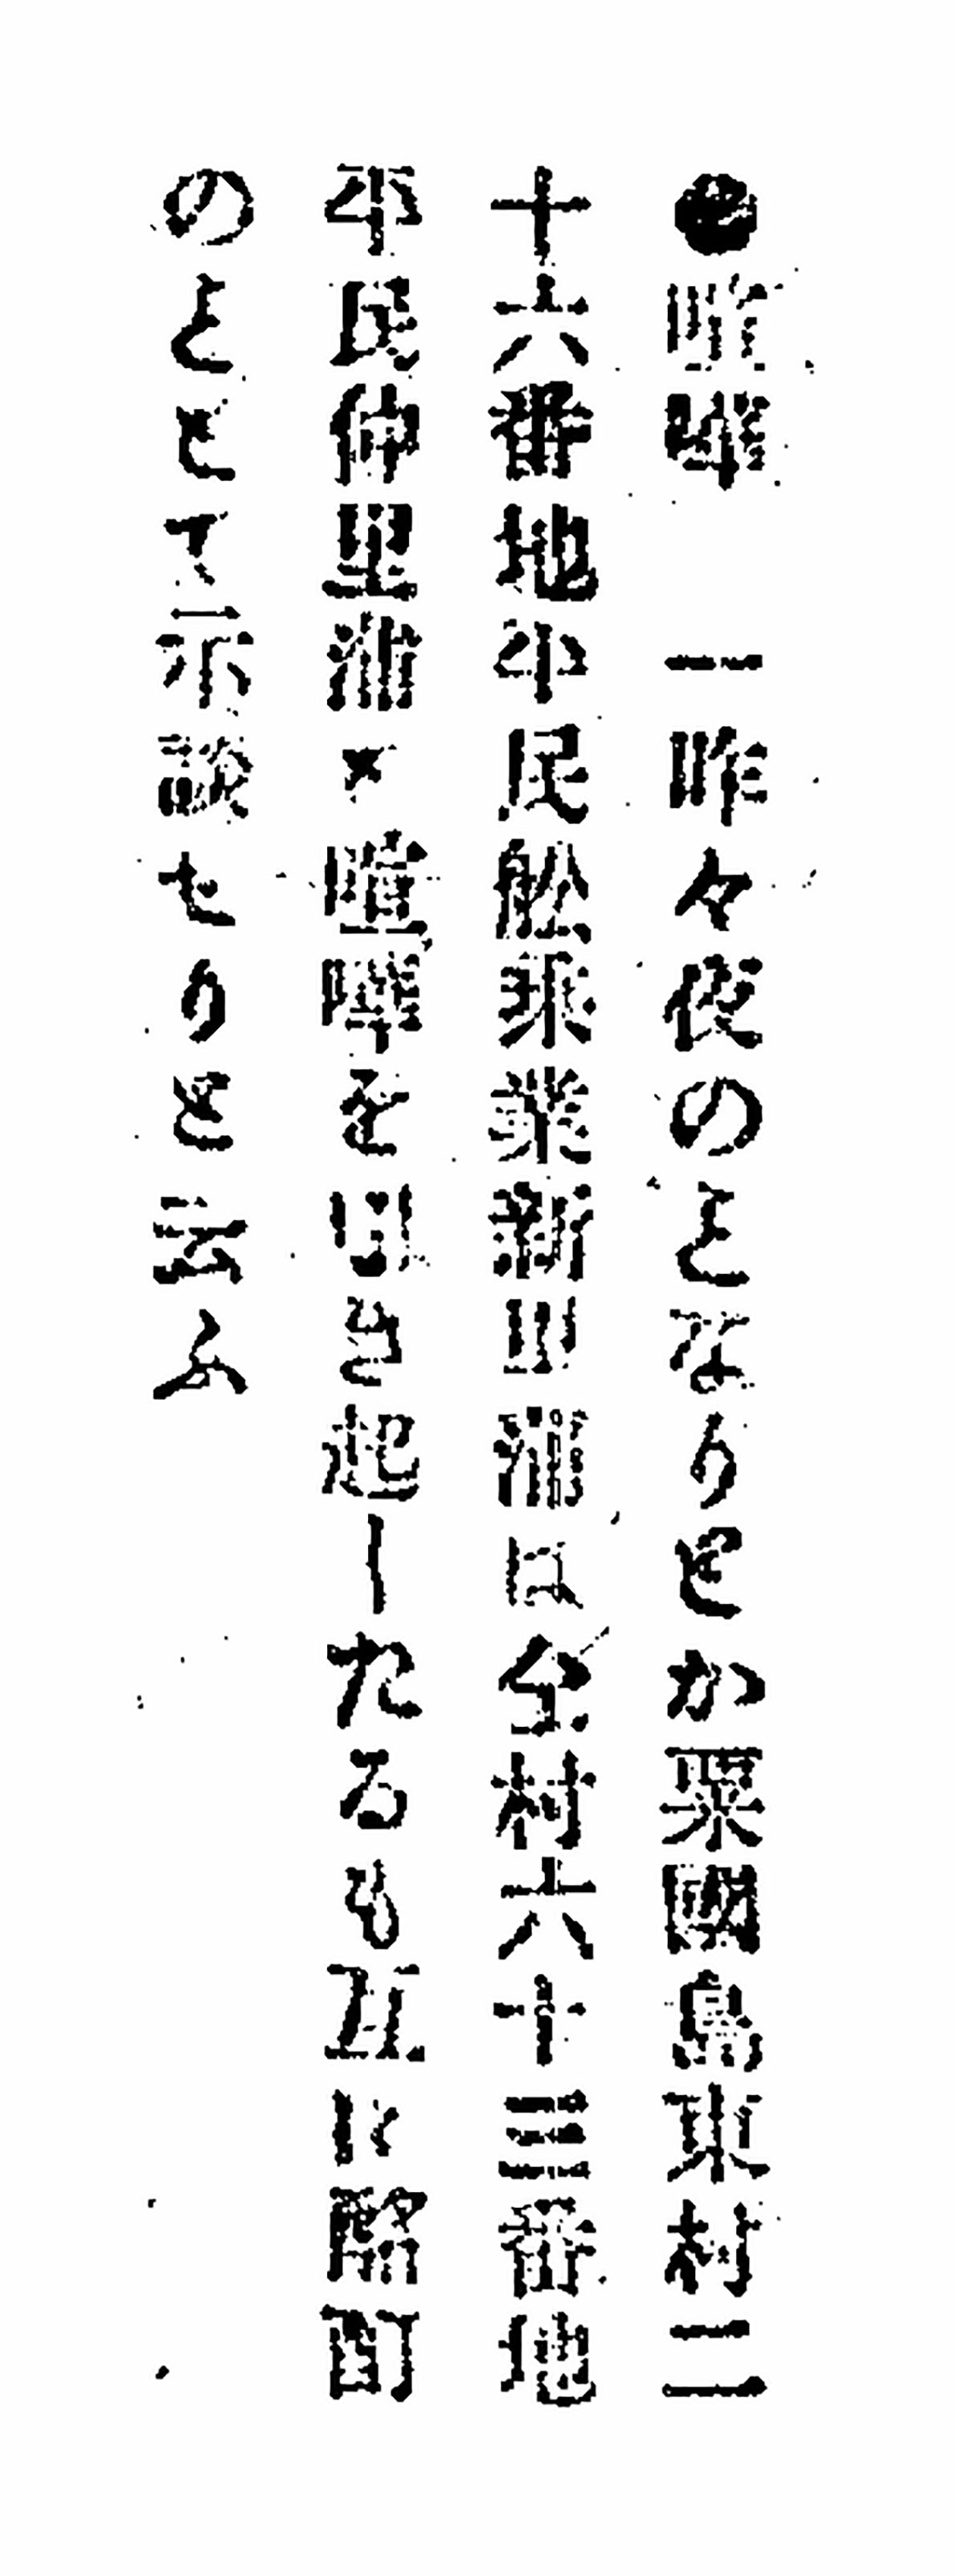 ●喧嘩　一昨々夜のことなりとか粟國島東村二
十六番地平民舩乘業新蒲は仝村六十三番地
平民仲里蒲と喧嘩をひき起したるも互に酩酊
のこととて示談せりと云ふ